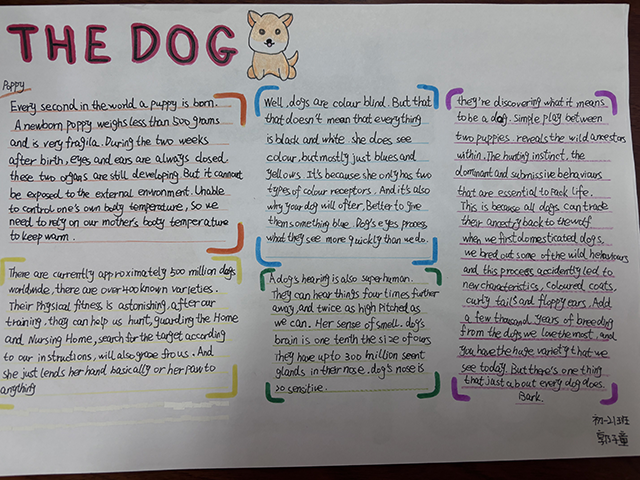 THE DOG
Puppy
Every second in the world a puppy is born.
A newborn poppy weighs less than 500 grams
and is very fragila. During the two weeks
after birth, eyes and ears are always closed
these two organs are still developing. But it cannot
be exposed to the external environment. Unable
to control one's own body temperature, so we
need to rely on our mother's body temperature
to keep warm.
There are currently approximately 500 million dogs
worldwide, there are over 400 known varieties.
Their physical fitness is astonishing, after our
training. they can help us hunt, guarding the Home
and Nursing Home, search for the target according
to our instructions, will also grace for us. And
she just lends her hand basically or her paw to
anything
Well, dogs are colour blind. But that
that doesn't mean that everything
is black and white. she does see
colour, but mostly just blues and
yellows. It's because she only has two
types of colour receptors. And it's also
why your dog will often. Better to give
them something blue. Dog's eyes process
what they see more quickly than we do.
A dog's hearing is also super human.
They can hear things four times further
away, and twice as high pitched as
we can. Her sense of smell. dog's
brain is one tenth the size of ours
They have up to 300 million scent
glands in their nose. dog's nose is
so sensitive.
they're discovering what it means
to be a dog. simple play between
two puppies reveals the wild ancestors
within. The hunting instinct, the
dominant and submissive behaviours
that are essential to pack life.
This is because all dogs can trace
their ancestry back to the wolf
when we first domesticated dogs,
we bred out some of the wild behaviours
and this process accidently led to
new characteristics, coloured coats,
curly tails and floppy ears. Add
a few thousand years of breeding
from the dogs we love the most, and
you have the huge variety that we
see today. But there's one thing
that just about every dog does.
Bark.
初一213班
郭子童